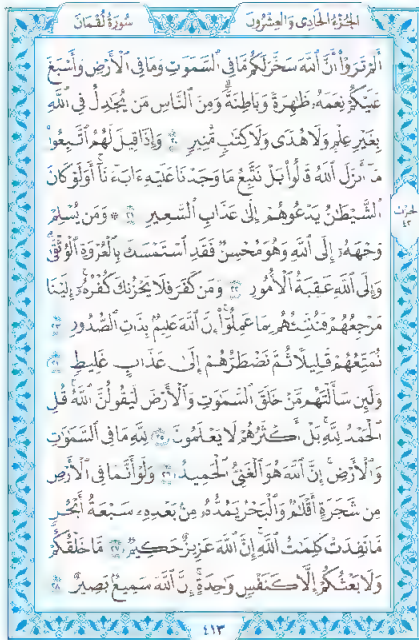 الجزء الحادي والعشرون
سورة لقمان
أَلَمْ تَرَوْا۟ أَنَّ ٱللَّهَ سَخَّرَ لَكُم مَّا فِى ٱلسَّمَٰوَٰتِ وَمَا فِى ٱلْأَرْضِ وَأَسْبَغَ
عَلَيْكُمْ نِعَمَهُۥ ظَٰهِرَةً وَبَاطِنَةً وَمِنَ ٱلنَّاسِ مَن يُجَٰدِلُ فِى ٱللَّهِ
بِغَيْرِ عِلْمٍ وَلَا هُدًى وَلَا كِتَٰبٍ مُّنِيرٍ ٢٠ وَإِذَا قِيلَ لَهُمُ ٱتَّبِعُوا۟
مَآ أَنزَلَ ٱللَّهُ قَالُوا۟ بَلْ نَتَّبِعُ مَا وَجَدْنَا عَلَيْهِ ءَابَآءَنَآ أَوَلَوْ كَانَ
ٱلشَّيْطَٰنُ يَدْعُوهُمْ إِلَىٰ عَذَابِ ٱلسَّعِيرِ ٢١ ۞ وَمَن يُسْلِمْ
وَجْهَهُۥٓ إِلَى ٱللَّهِ وَهُوَ مُحْسِنٌ فَقَدِ ٱسْتَمْسَكَ بِٱلْعُرْوَةِ ٱلْوُثْقَىٰ
وَإِلَى ٱللَّهِ عَٰقِبَةُ ٱلْأُمُورِ ٢٢ وَمَن كَفَرَ فَلَا يَحْزُنكَ كُفْرُهُۥٓ إِلَيْنَا
مَرْجِعُهُمْ فَنُنَبِّئُهُم بِمَا عَمِلُوٓا۟ إِنَّ ٱللَّهَ عَلِيمٌۢ بِذَاتِ ٱلصُّدُورِ ٢٣
نُمَتِّعُهُمْ قَلِيلًا ثُمَّ نَضْطَرُّهُمْ إِلَىٰ عَذَابٍ غَلِيظٍ ٢٤
وَلَئِن سَأَلْتَهُم مَّنْ خَلَقَ ٱلسَّمَٰوَٰتِ وَٱلْأَرْضَ لَيَقُولُنَّ ٱللَّهُ قُلِ
ٱلْحَمْدُ لِلَّهِ بَلْ أَكْثَرُهُمْ لَا يَعْلَمُونَ ٢٥ لِلَّهِ مَا فِى ٱلسَّمَٰوَٰتِ
وَٱلْأَرْضِ إِنَّ ٱللَّهَ هُوَ ٱلْغَنِىُّ ٱلْحَمِيدُ ٢٦ وَلَوْ أَنَّمَا فِى ٱلْأَرْضِ
مِن شَجَرَةٍ أَقْلَٰمٌ وَٱلْبَحْرُ يَمُدُّهُۥ مِنۢ بَعْدِهِۦ سَبْعَةُ أَبْحُرٍ
مَّا نَفِدَتْ كَلِمَٰتُ ٱللَّهِ إِنَّ ٱللَّهَ عَزِيزٌ حَكِيمٌ ٢٧ مَّا خَلْقُكُمْ
وَلَا بَعْثُكُمْ إِلَّا كَنَفْسٍ وَٰحِدَةٍ إِنَّ ٱللَّهَ سَمِيعٌۢ بَصِيرٌ ٢٨
الحزب
٤٢
٤١٣